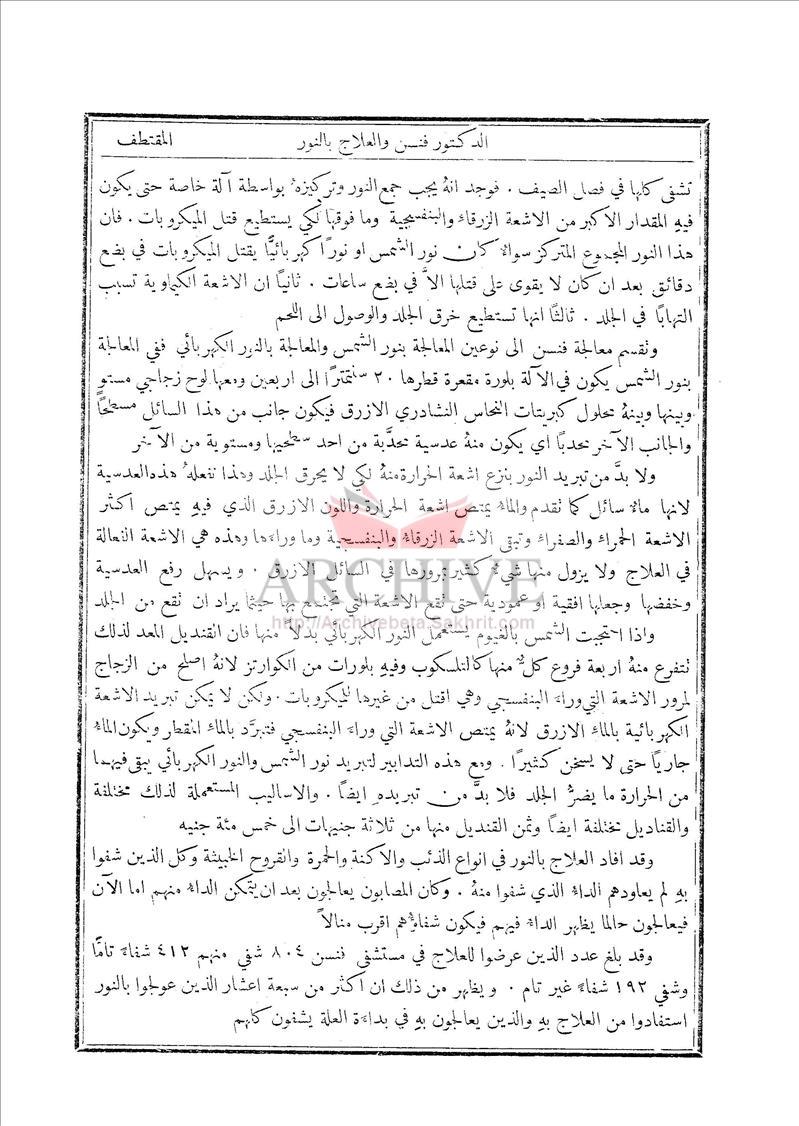 الدكتور فنسن والعلاج بالنور
المقتطف
تشفى كلها في فصل الصيف . فوجد انهُ يجب جمع النور وتركيزهُ بواسطة آلة خاصة حتى يكون
فيهِ المقدار الاكبر من الاشعة الزرقاء والبنفسجية وما فوقها لكي يستطيع قتل الميكروبات . فان
هذا النور المجموع المتركز سواءٌ كان نور الشمس او نورًا كهربائيًّا يقتل الميكروبات في بضع
دقائق بعد ان كان لا يقوى على قتلها الاَّ في بضع ساعات . ثانيًا ان الاشعة الكيماوية تسبب
التهابًا في الجلد . ثالثًا انها تستطيع خرق الجلد والوصول الى اللحم
وتقسم معالجة فنسن الى نوعين المعالجة بنور الشمس والمعالجة بالنور الكهربائي ففي المعالجة
بنور الشمس يكون في الآلة بلورة مقعرة قطرها ٢٠ سنتمترًا الى اربعين ومعها لوح زجاجي مستوٍ
وبينها وبينهُ محلول كبريتات النحاس النشادري الازرق فيكون جانب من هذا السائل مسطحًا
والجانب الآخر محدبًا اي يكون منهُ عدسية محدَّبة من احد سطحيها ومستوية من الآخر
ولا بدَّ من تبريد النور بنزع اشعة الحرارة منهُ لكي لا يحرق الجلد وهذا تفعلهُ هذه العدسية
لانها ماءٌ سائل كما تقدم والماء يمتص اشعة الحرارة واللون الازرق الذي فيهِ يمتص اكثر
الاشعة الحمراء والصفراء وتبقى الاشعة الزرقاء والبنفسجية وما وراءها وهذه هي الاشعة الفعالة
في العلاج ولا يزول منها شيءٌ كثير بمرورها في السائل الازرق . ويسهل رفع العدسية
وخفضها وجعلها افقية او عمودية حتى تقع الاشعة التي تجتمع بها حيثما يراد ان تقع من الجلد
واذا احتجبت الشمس بالغيوم يستعمل النور الكهربائي بدلاً منها فان القنديل المعد لذلك
تتفرع منهُ اربعة فروع كلٌّ منها كالتلسكوب وفيهِ بلورات من الكوارتز لانهُ اصلح من الزجاج
لمرور الاشعة التي وراء البنفسجي وهي اقتل من غيرها للميكروبات . ولكن لا يمكن تبريد الاشعة
الكهربائية بالماء الازرق لانهُ يمتص الاشعة التي وراء البنفسجي فتبرَّد بالماء المقطر ويكون الماء
جاريًا حتى لا يسخن كثيرًا . ومع هذه التدابير لتبريد نور الشمس والنور الكهربائي يبقى فيهما
من الحرارة ما يضرُّ الجلد فلا بدَّ من تبريده ايضًا . والاساليب المستعملة لذلك مختلفة
والقناديل مختلفة ايضًا وثمن القنديل منها من ثلاثة جنيهات الى خمس مئة جنيه
وقد افاد العلاج بالنور في انواع الذئب والاكنة والحمرة والقروح الخبيثة وكل الذين شفوا
بهِ لم يعاودهم الداءُ الذي شفوا منهُ . وكان المصابون يعالجون بعد ان يتمكن الداءُ منهم اما الآن
فيعالجون حالما يظهر الداءُ فيهم فيكون شفاؤُهم اقرب منالاً
وقد بلغ عدد الذين عرضوا للعلاج في مستشفى فنسن ٨٠٤ شفي منهم ٤١٢ شفاءً تامًّا
وشفي ١٩٢ شفاءً غير تام . ويظهر من ذلك ان اكثر من سبعة اعشار الذين عولجوا بالنور
استفادوا من العلاج بهِ والذين يعالجون بهِ في بداءة العلة يشفون كلهم
ARCHIVE
http://Archivebeta.Sakhrit.com